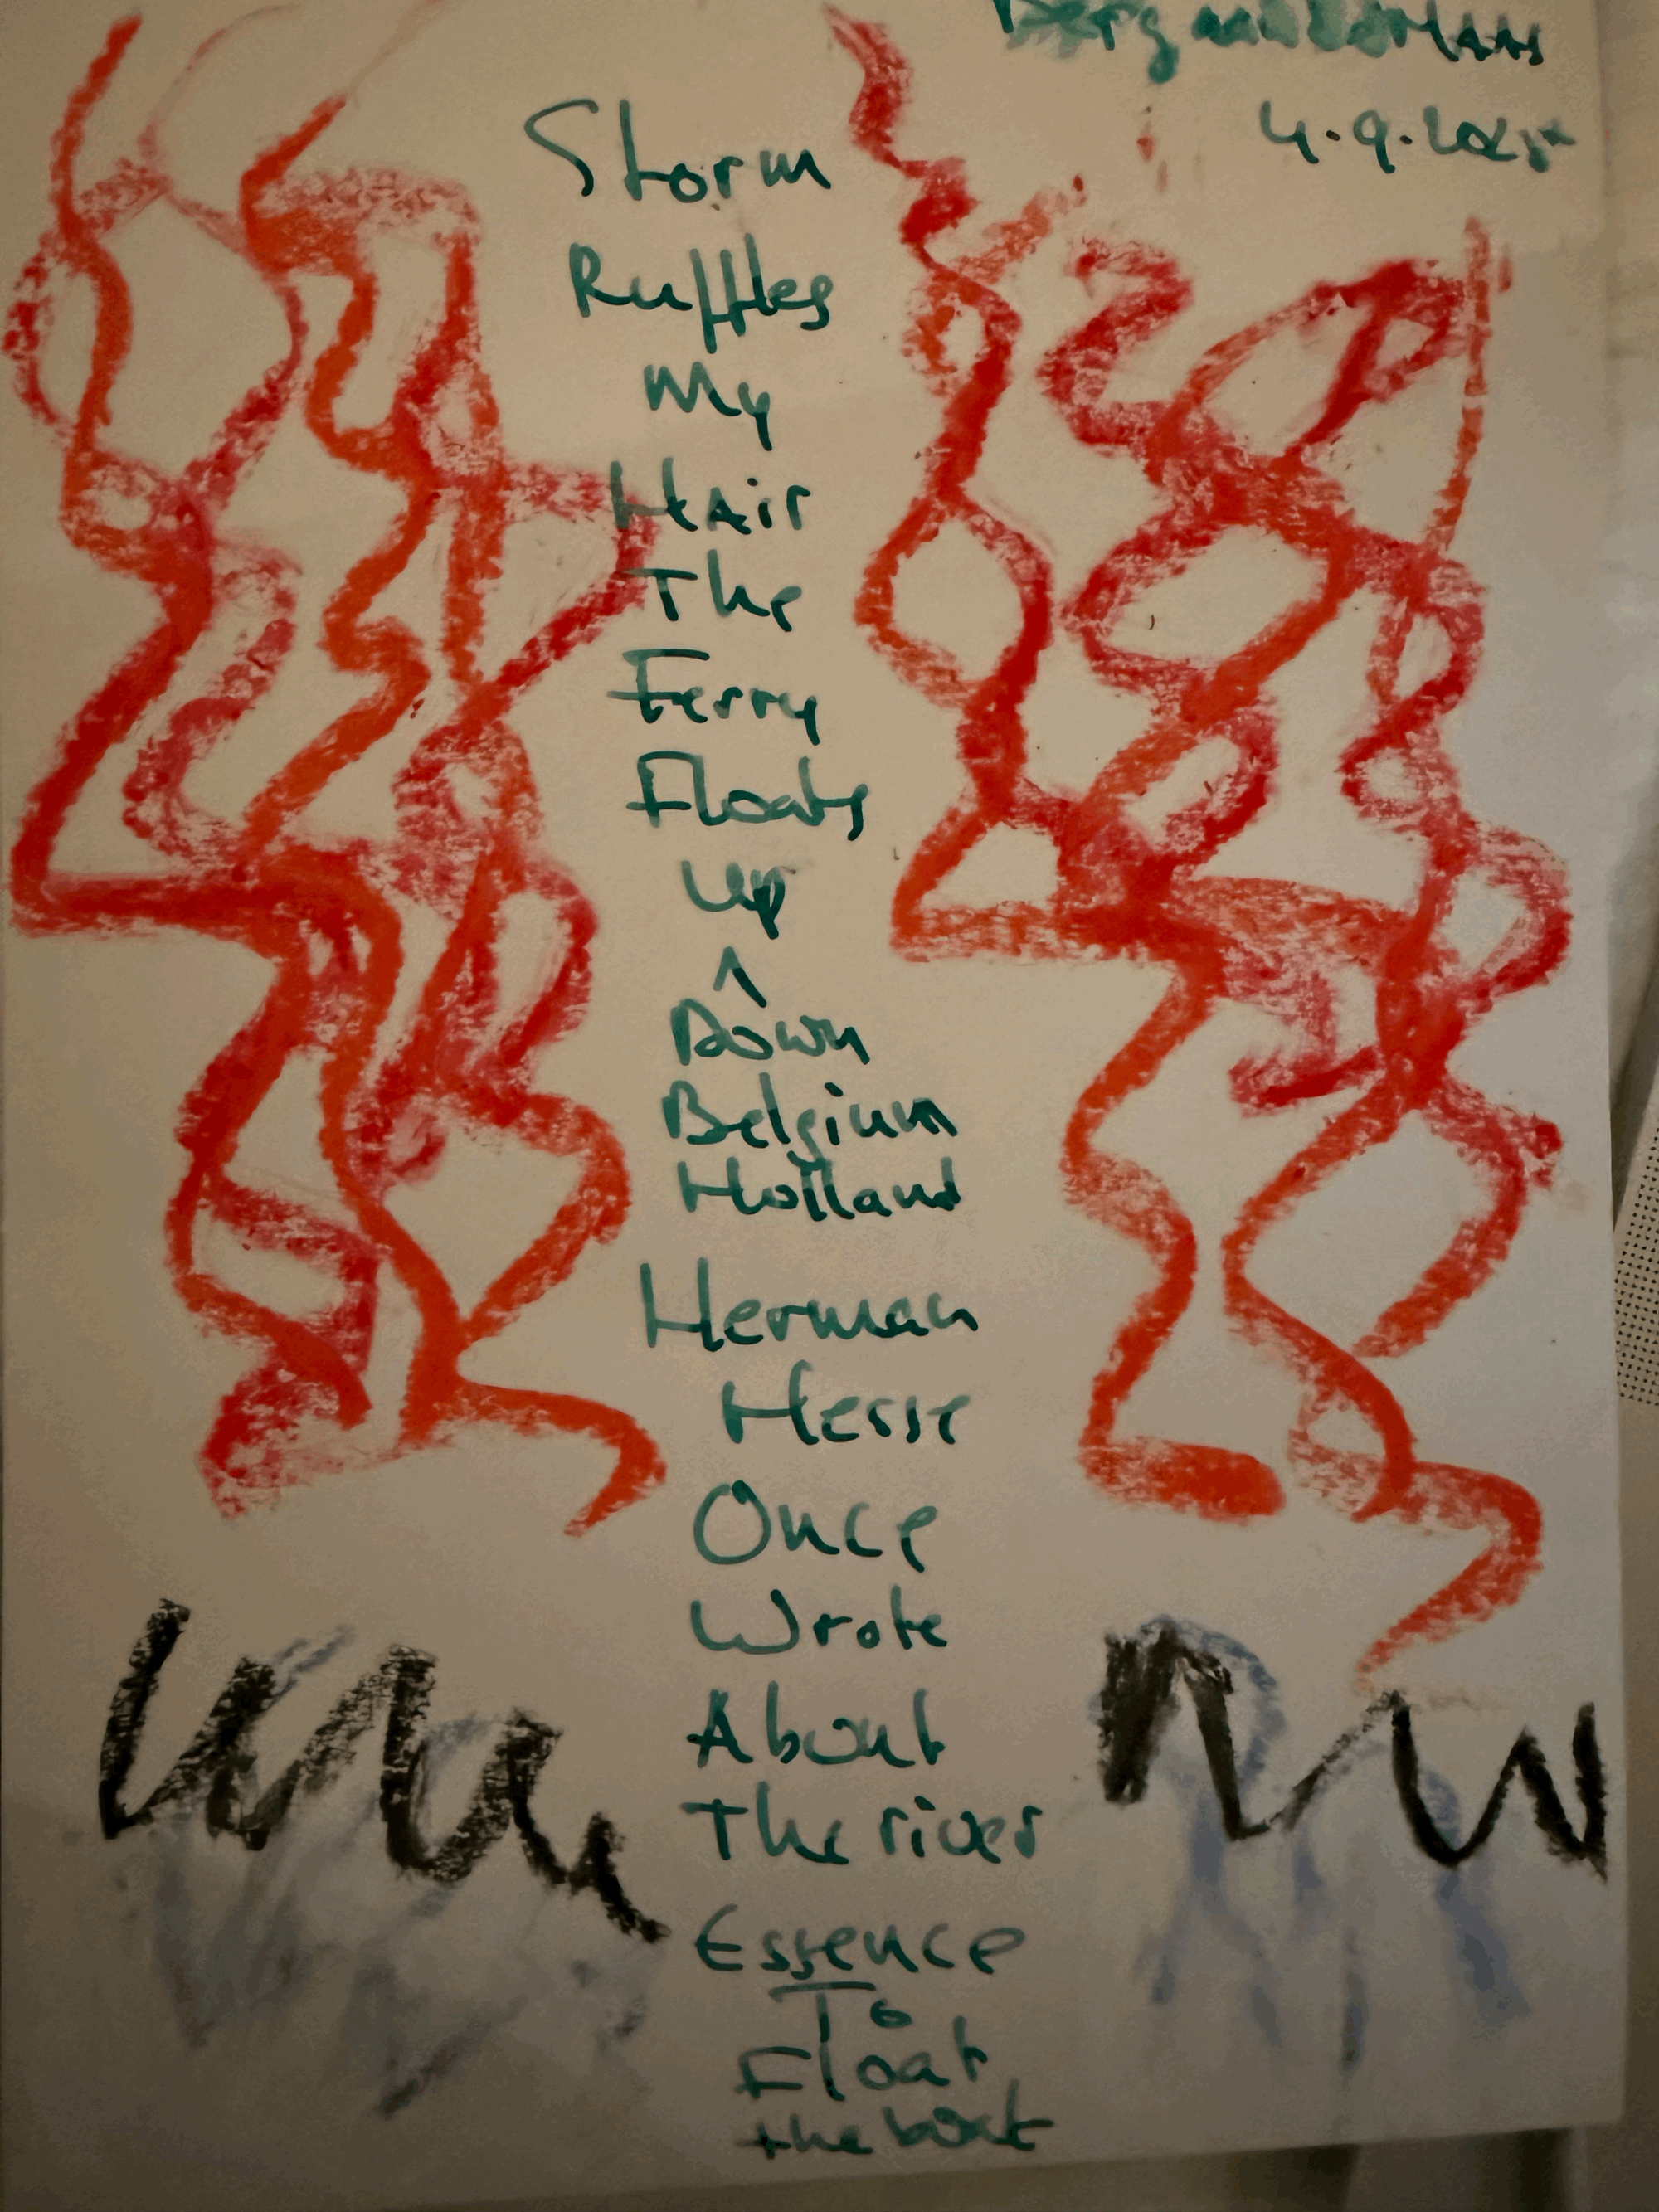 Berg aan de Maas
4.9.2025
Storm
Ruffles
My
Hair
The
Ferry
Floats
Up
^
Down
Belgium
Holland
Herman
Hesse
Once
Wrote
About
The river
Essence
To
Float
the boat